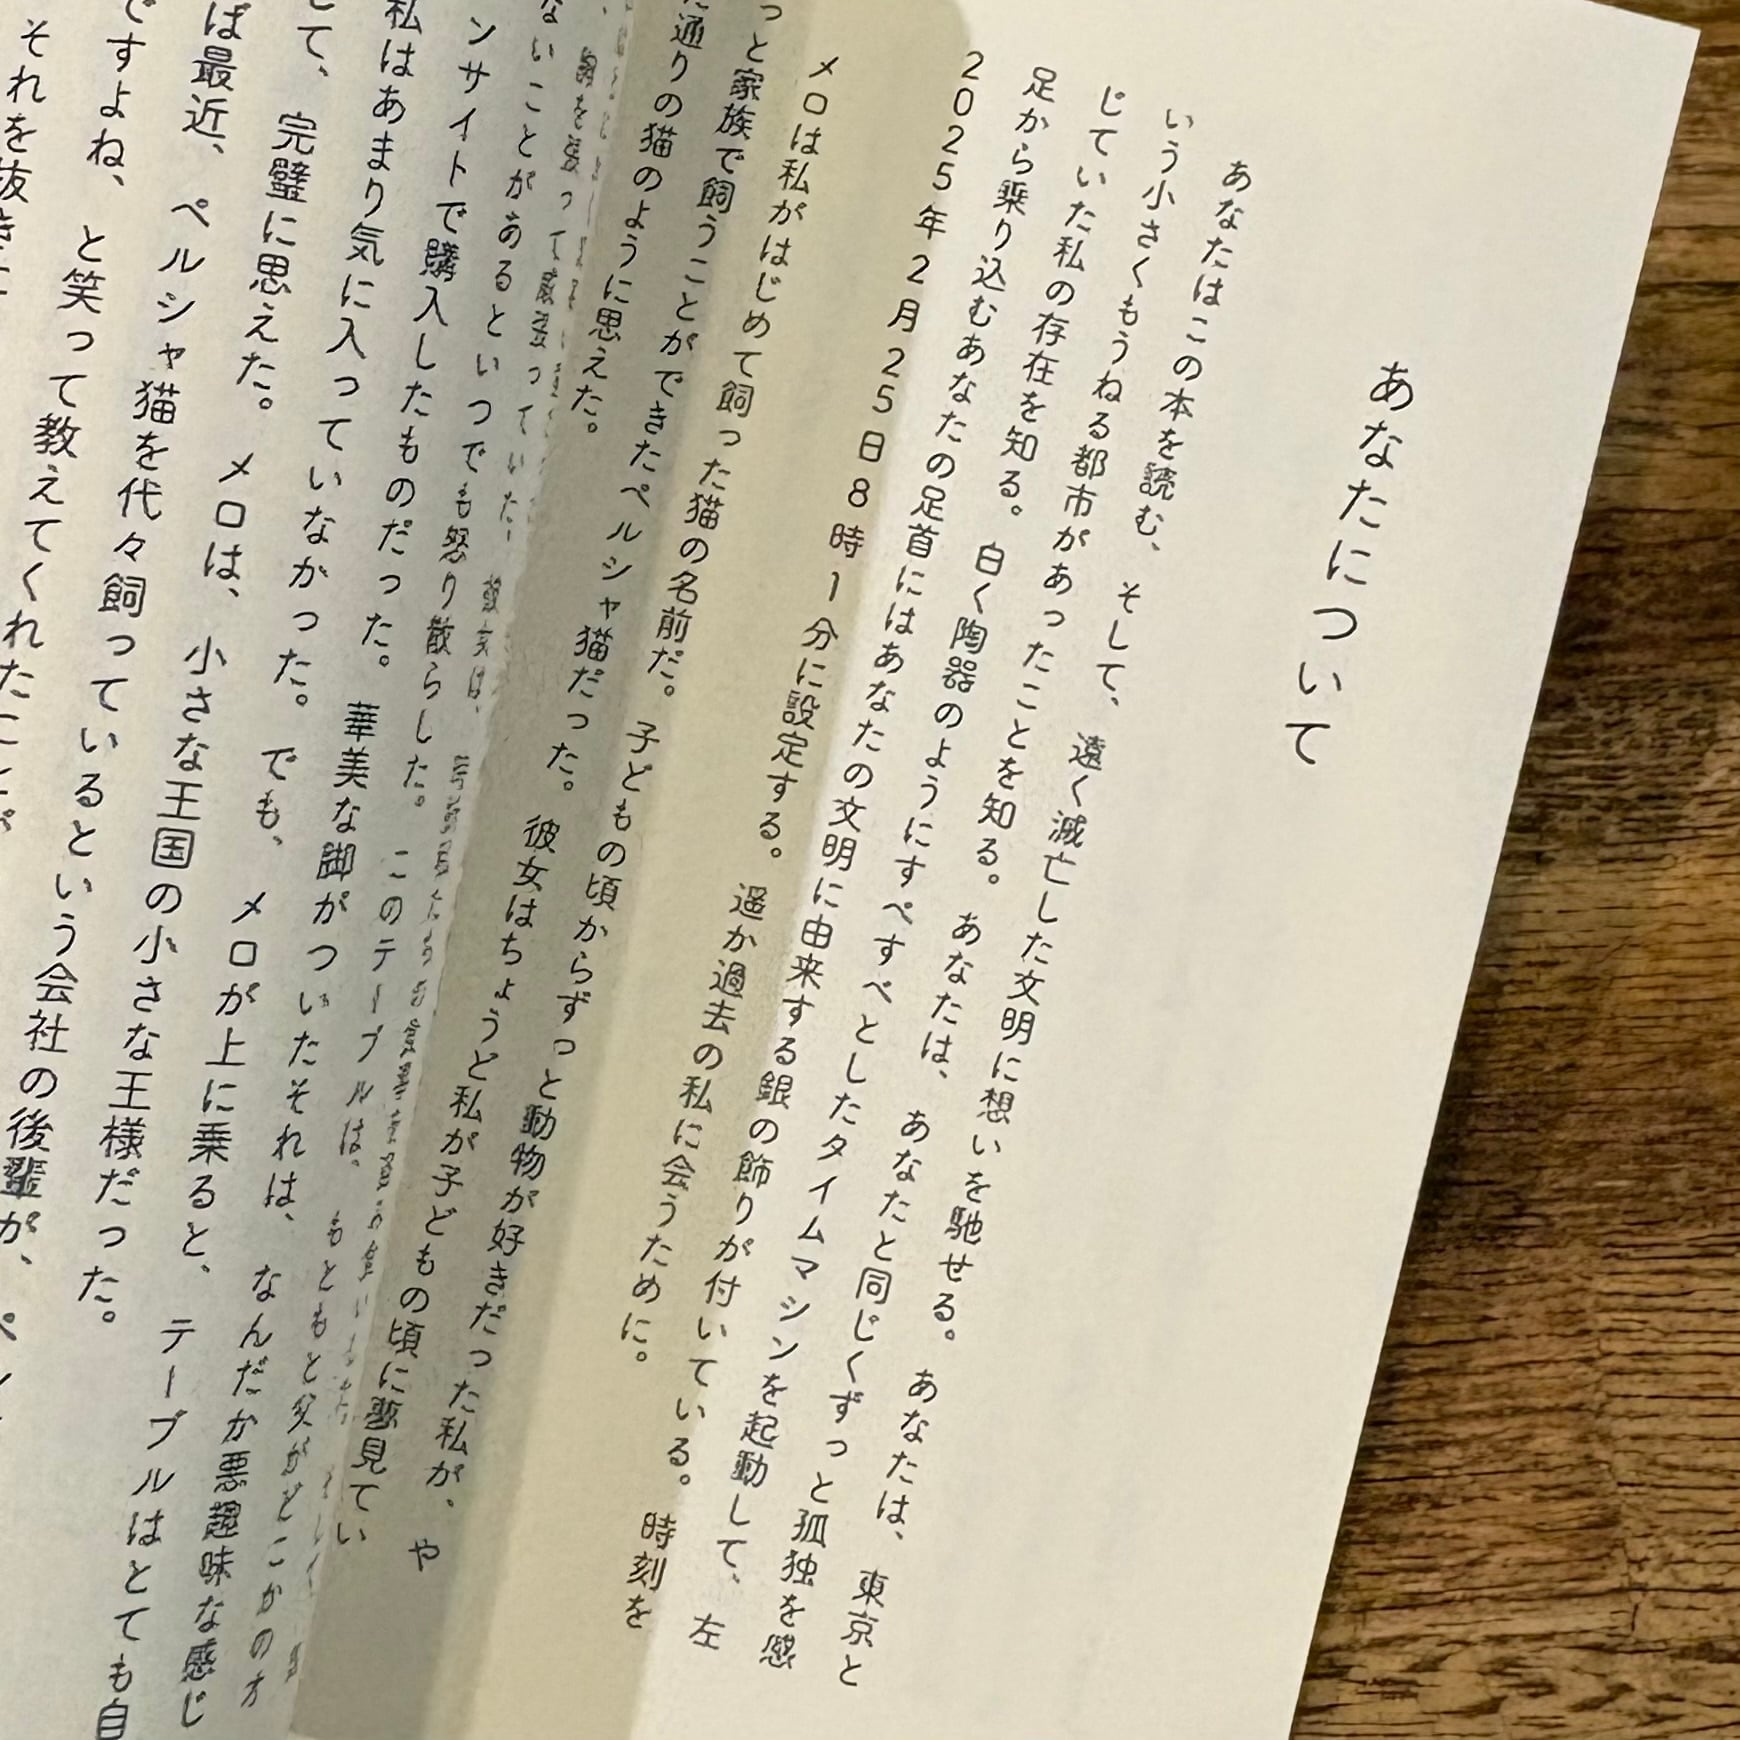 あなたについて
あなたはこの本を読む、そして、遠く滅亡した文明に想いを馳せる。あなたは、東京と
いう小さくもうねる都市があったことを知る。あなたは、あなたと同じくずっと孤独を感
じていた私の存在を知る。白く陶器のようにすべすべとしたタイムマシンを起動して、左
足から乗り込むあなたの足首にはあなたの文明に由来する銀の飾りが付いている。時刻を
2025年2月25日8時1分に設定する。遥か過去の私に会うために。
メロは私がはじめて飼った猫の名前だ。子どもの頃からずっと動物が好きだった私が、や
っと家族で飼うことができたペルシャ猫だった。彼女はちょうど私が子どもの頃に夢見てい
た通りの猫のように思えた。
ないことがあるといつでも怒り散らした。このテーブルは、もともと父がどこかの
ンサイトで購入したものだった。華美な脚がついたそれは、なんだか悪趣味な感じ
私はあまり気に入っていなかった。でも、メロが上に乗ると、テーブルはとても自
して、完璧に思えた。メロは、小さな王国の小さな王様だった。
ば最近、ペルシャ猫を代々飼っているという会社の後輩が、ペ
ですよね、と笑って教えてくれたこと
それを抜き